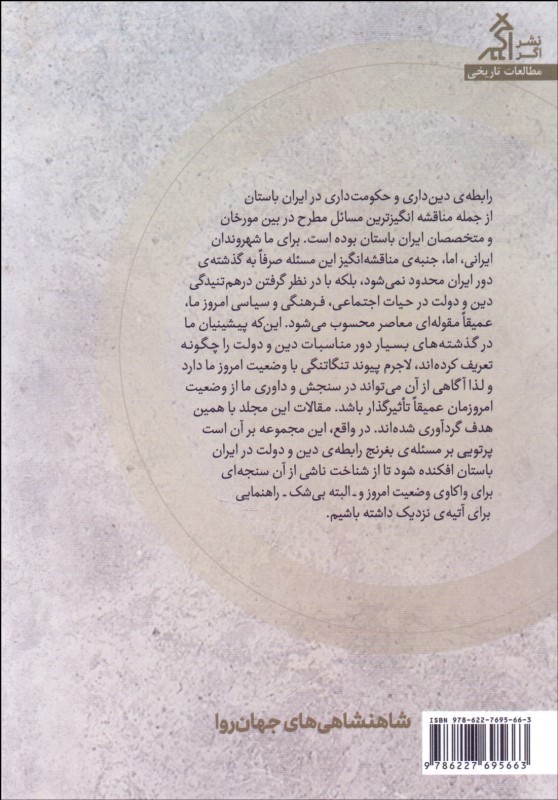 نشر
اگر
مطالعات تاریخی
رابطه‌ی دین‌داری و حکومت‌داری در ایران باستان
از جمله مناقشه انگیزترین مسائل مطرح در بین مورخان
و متخصصان ایران باستان بوده است. برای ما شهروندان
ایرانی، اما، جنبه‌ی مناقشه‌انگیز این مسئله صرفاً به گذشته‌ی
دور ایران محدود نمی‌شود، بلکه با در نظر گرفتن درهم‌تنیدگی
دین و دولت در حیات اجتماعی، فرهنگی و سیاسی امروز ما،
عمیقاً مقوله‌ای معاصر محسوب می‌شود. این‌که پیشینیان ما
در گذشته‌های بسیار دور مناسبات دین و دولت را چگونه
تعریف کرده‌اند، لاجرم پیوند تنگاتنگی با وضعیت امروز ما دارد
و لذا آگاهی از آن می‌تواند در سنجش و داوری ما از وضعیت
امروزمان عمیقاً تأثیرگذار باشد. مقالات این مجلد با همین
هدف گردآوری شده‌اند. در واقع، این مجموعه بر آن است
پرتویی بر مسئله‌ی بغرنج رابطه‌ی دین و دولت در ایران
باستان افکنده شود تا از شناخت ناشی از آن سنجه‌ای
برای واکاوی وضعیت امروز و ـ البته بی‌شک ـ راهنمایی
برای آتیه‌ی نزدیک داشته باشیم.
شاهنشاهی‌های جهان‌روا
ISBN 978-622-7695-66-3
9 786227 695663